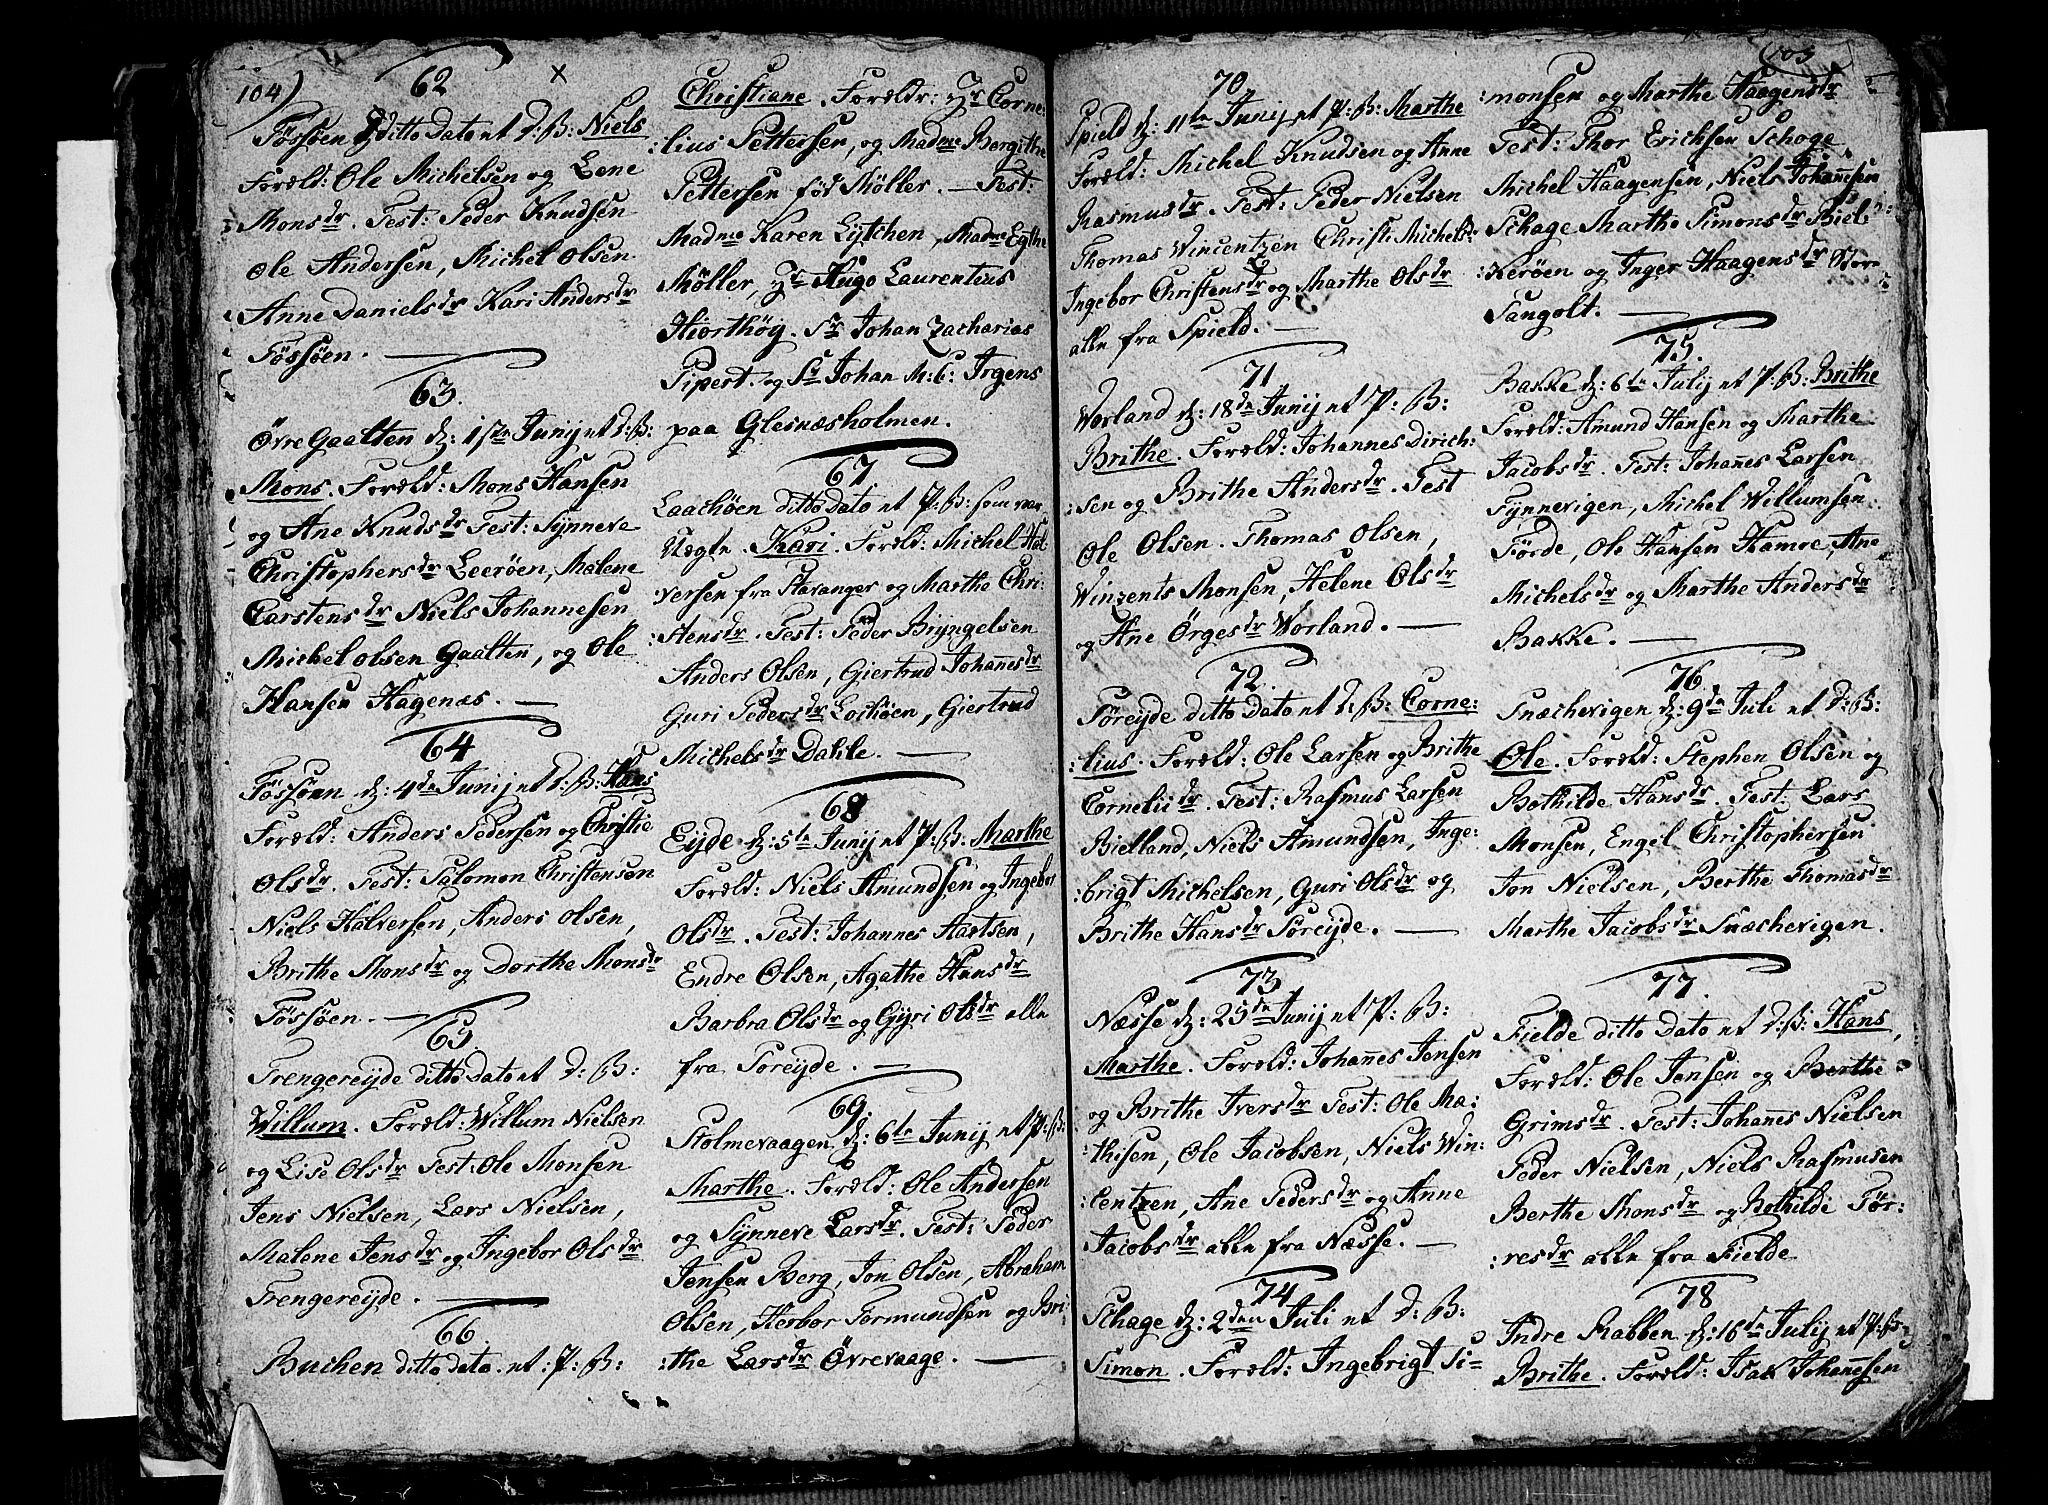 104)
62
Føssøen d: ditto Dato et D: B: Niels
Foræld: Ole Michelsen og Lene
Monsdr. Test: Peder Knudsen
Ole Andersen, Michel Olsen
Anne Danielsdr Kari Andersdr
Føssøen.
63.
Øvre Gaalten d: 1ste Junij et D: B:
Mons. Foræld: Mons Hansen
og Ane Knudsdr Test: Synneve
Christophersdr Leerøen, Malene
Carstensdr Niels Johannesen
Michel Olsen Gaalten, og Ole
Hansen Hagenæs.
64
Føssøen d: 4de Junij et D: B: Hans
Foræld: Anders Pedersen og Christie
Olsdr. Test: Salomon Christensen
Niels Halversen, Anders Olsen,
Brithe Monsdr og Dorthe Monsdr
Føssøen.
65
Trengereyde ditto Dato et D: B:
Willum. Foræld: Willum Nielsen
og Lise Olsdr Test: Ole Monsen
Jens Nielsen, Lars Nielsen,
Malene Jensdr og Ingebor Olsdr
Trengereyde.
66.
Buchen ditto dato. et: P: B:
Christiane. Foreldr: Hr Corne:
:lius Pettersen, og Madme Bergithe
Pettersen fød Møller. — Test:
Madme Karen Lytchen, Madme Egthe
Møller, Hr Hugo Laurentius
Hiorthøy. Sr Johan Zacharias
Pipert. og Sr Johan M: C: Irgens
paa Glesnæsholmen.
67
Laachøen ditto dato et P: B: som var
Uægte. Kari. Foræld: Michel Hal:
:versen fra Stavanger og Marthe Chri:
:stensdr. Test: Peder Bryngelsen
Anders Olsen, Giertrud Johannesdr
Guri Pedersdr Lochøen, Giertrud
Michelsdr Dahle.
68
Eyde d: 5te Junij et P: B. Marthe
Foræld: Niels Amundsen og Ingebor
Olsdr. Test: Johannes Aartsen,
Endre Olsen, Agathe Hansdr
Barbra Olsdr og Gyri Olsdr alle
fra Toreyde.
69.
Stolmevaagen d: 6te Junij et P: B:
Marthe. Foræld: Ole Andersen
og Synneve Larsdr. Test: Peder
Jensen Berg, Jon Olsen, Abraham
Olsen, Herbor Tormundsen og Bri:
:the Larsdr Øvrevaage.
70
Spield d: 11te Junij et P: B: Marthe
Foræld: Michel Knudsen og Anne
Rasmusdr. Test: Peder Nielsen
Thomas Wincentzen Christ: Michels:
Ingebor Christensdr og Marthe Olsdr
alle fra Spield.
71
Worland d: 18de Junij et P: B:
Brithe. Foræld: Johannes Dirich:
:sen og Brithe Andersdr. Test
Ole Olsen. Thomas Olsen,
Winzents Monsen, Helene Olsdr
og Ane Ørgesdr Worland.
72.
Toreyde ditto Dato et D: B: Corne:
:lius. Foræld: Ole Larsen og Brithe
Corneliidr. Test: Rasmus Larsen
Bielland, Niels Amundsen, Inge:
:brigt Michelsen, Guri Olsdr og
Brithe Hansdr Toreyde.
73
Næsse d: 25de Junij et P: B:
Marthe. Foræld: Johannes Jensen
og Brithe Iversdr Test: Ole Ma:
:thisen, Ole Jacobsen, Niels Win:
:centzen, Ane Pedersdr og Anne
Jacobsdr alle fra Næsse.
74
Schage d: 2den Juli et D: B:
Simon. Foræld: Ingebrigt Si=
105
:monsen og Marthe Haagensdr
Test: Thor Ericksen Schoge
Michel Haagensen, Niels Johannesen
Schage Marthe Simonsdr Biel:
:kerøen og Inger Haagensdr Store
Sangolt.
75.
Bakke d: 6te Julij et P: B: Brithe
Foræld: Amund Hansen og Marthe
Jacobsdr. Test: Johannes Larsen
Tynnevigen, Michel Willumsen
Førde, Ole Hansen Hamre, Ane
Michelsdr og Marthe Andersdr
Bakke.
76
Snæchevigen d: 9de Juli et D: B:
Ole. Foræld: Stephen Olsen og
Bothilde Hansdr. Test: Lars
Monsen, Engel Christophersen
Jon Nielsen, Berthe Thomasdr
Marthe Jacobsdr Snæchevigen.
77.
Fielde ditto Dato et D: B: Hans,
Foræld: Ole Jensen og Berthe
Grimsdr. Test: Johannes Nielsen
Peder Nielsen, Niels Rasmusen
Berthe Monsdr og Bothilde Tør:
:resdr alle fra Fielde
78
Indre Rabben d: 16de Julij et P: B:
Brithe. Foræld: Isak Johannesen